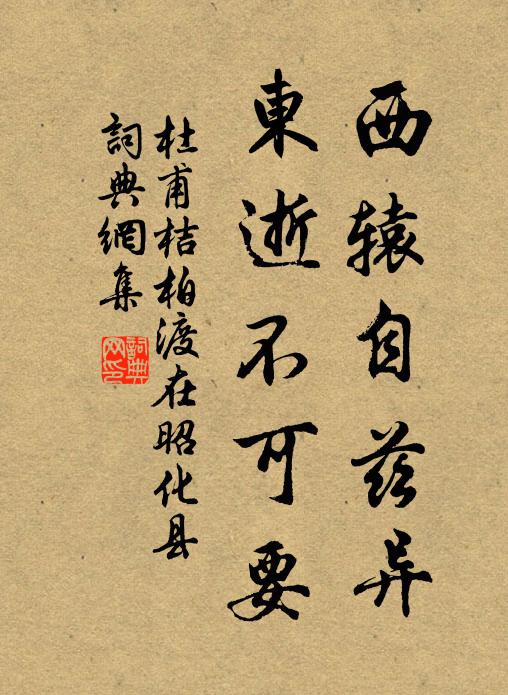 西辕自茲异
東逝不可要
杜甫桔柏渡在昭化县
詞典網集
詞典网印